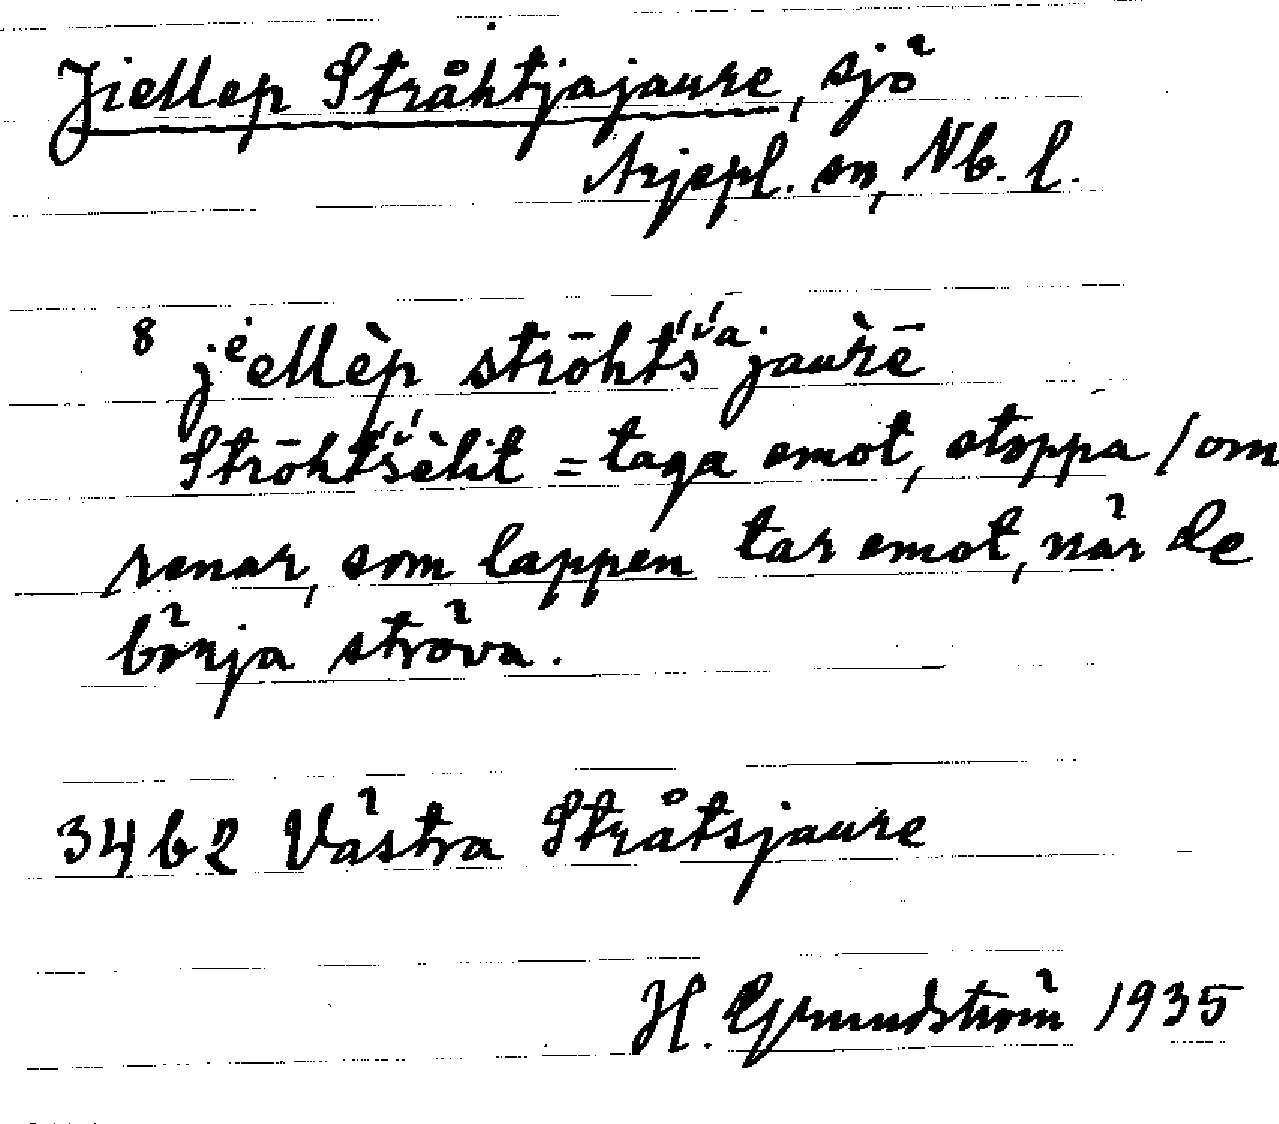 Jiellep Stråhtjajaure, sjö
Arjepl. sn, Nb. l.
8 jᵉellèp ströhtš́ᵃ jaùrē
Strōhtš́èlit = taga emot, stoppa / om
renar, som lappen tar emot, när de
börja ströva.
34 b 2 Västra Stråtsjaure
H. Grundström 1935